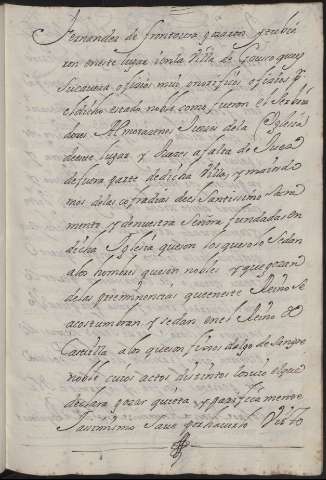 Fernandez de frontoura gozaron y tubie
ron en este lugar i en la Villa de Gouro quees
su cauera oficios muy onorificos oficios p.
el dicho estado noble como fueron el ser
dores Almotacenes Jueces dela Iglesia
deeste lugar y Juezes afalta de Juez
defuera parte dedicha Villa, y maiordo
mos delas cofradias deel Santissimo sacra
mento, y denuestra señora fundadas en
dicha Iglesia queson los queso lo sedan
alos hombres queson nobles y quegozan
delas preeminencias queeneste Reino se
acostumbran y sedan en el Reino de
Castilla a los queson fixos dalgo de sangre
noble cuios actos distintos touio elque
declara gozar quieta y pazificamente
Tanimismo saue por hauerlo Visto